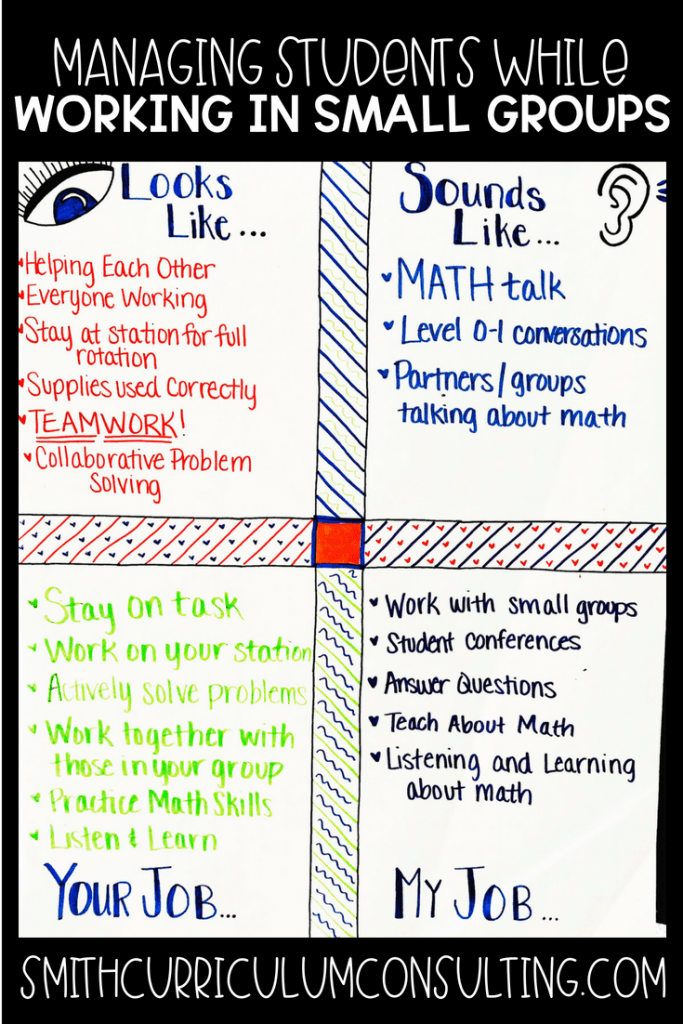 MANAGING STUDENTS WHILE
WORKING IN SMALL GROUPS
Looks
Like...
Helping Each Other
Everyone Working
Stay at station for full
rotation
Supplies used correctly
TEAMWORK!
Collaborative Problem
Solving
Sounds
Like...
MATH talk
Level 0-1 conversations
Partners/groups
talking about math
Stay on task
Work on your station
Actively solve problems
Work together with
those in your group
Practice Math Skills
Listen & Learn
Your Job...
Work with small groups
Student conferences
Answer Questions
Teach About Math
Listening and Learning
about math
My Job...
SMITHCURRICULUMCONSULTING.COM